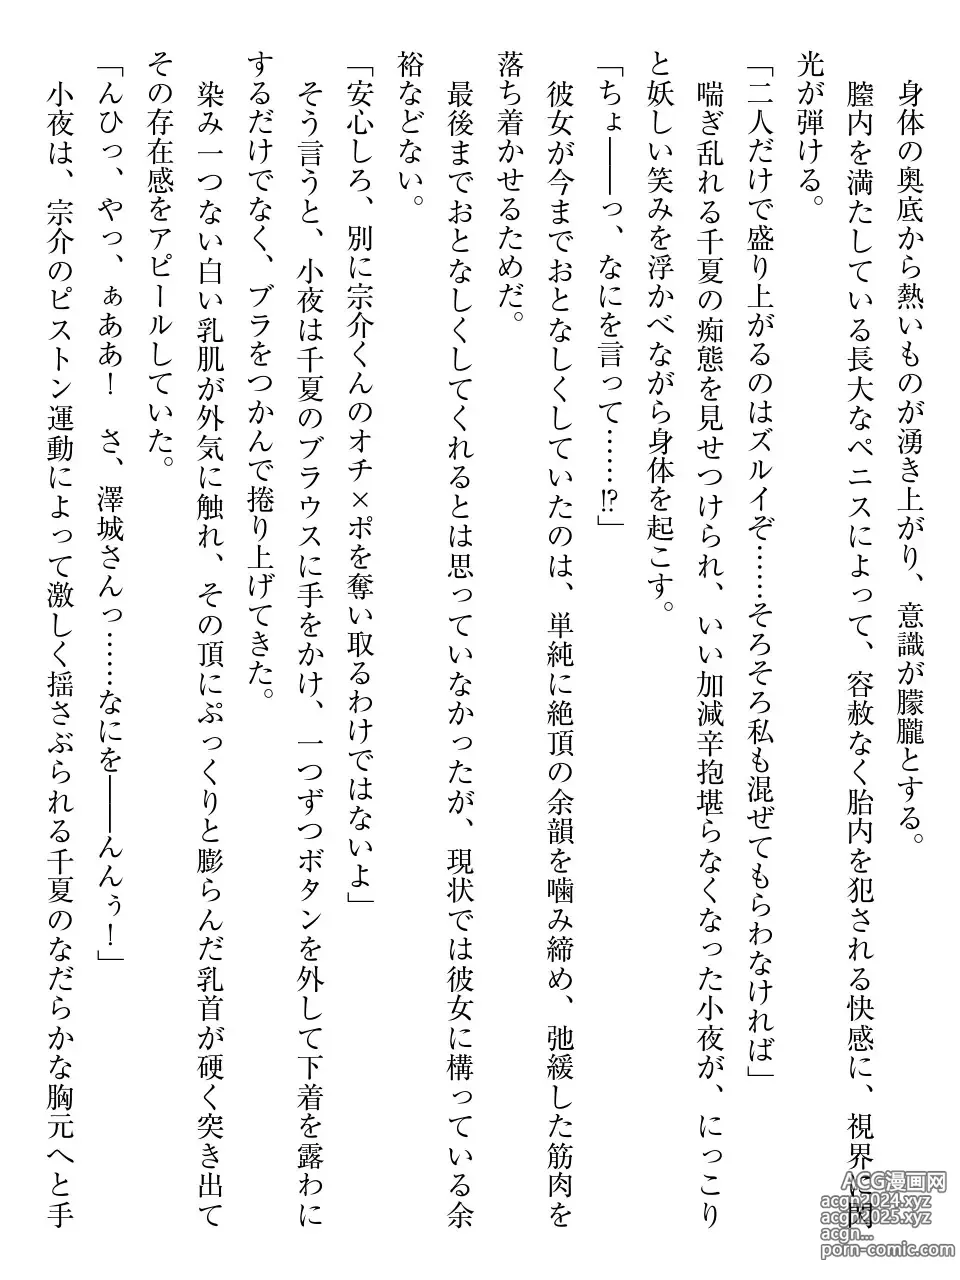 身体の奥底から熱いものが湧き上がり、意識が朦朧とする。
膣内を満たしている長大なペニスによって、容赦なく胎内を犯される快感に、視界に閃
光が弾ける。
「二人だけで盛り上がるのはズルイぞ……そろそろ私も混ぜてもらわなければ」
喘ぎ乱れる千夏の痴態を見せつけられ、いい加減辛抱堪らなくなった小夜が、にっこり
と妖しい笑みを浮かべながら身体を起こす。
「ちょ――っ、なにを言って……!?」
彼女が今までおとなしくしていたのは、単純に絶頂の余韻を噛み締め、弛緩した筋肉を
落ち着かせるためだ。
最後までおとなしくしてくれるとは思っていなかったが、現状では彼女に構っている余
裕などない。
「安心しろ、別に宗介くんのオチ×ポを奪い取るわけではないよ」
そう言うと、小夜は千夏のブラウスに手をかけ、一つずつボタンを外して下着を露わに
するだけでなく、ブラをつかんで捲り上げてきた。
染み一つない白い乳肌が外気に触れ、その頂にぷっくりと膨らんだ乳首が硬く突き出て
その存在感をアピールしていた。
「んひっ、やっ、ぁああ！　さ、澤城さんっ……なにを――んんぅ！」
小夜は、宗介のピストン運動によって激しく揺さぶられる千夏のなだらかな胸元へと手
ACG漫画网
acgn2024.xyz
acgn2025.xyz
acgn...
porn-comic.com